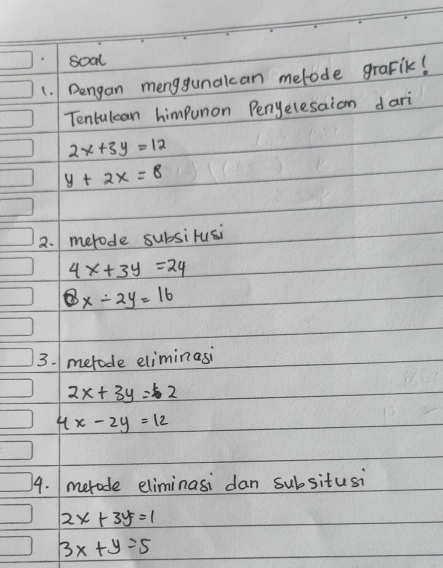 Soal
1. Dengan menggunakan metode grafik!
Tentukan himpunan Penyelesaian dari
2x+3y=12
y + 2x = 8
2. metode subsitusi
4x+3y =24
8x - 2y = 16
3. metode eliminasi
2x + 3y = 2
4x - 2y = 12
4. metode eliminasi dan subsitusi
2x + 3y = 1
3x + y = 5